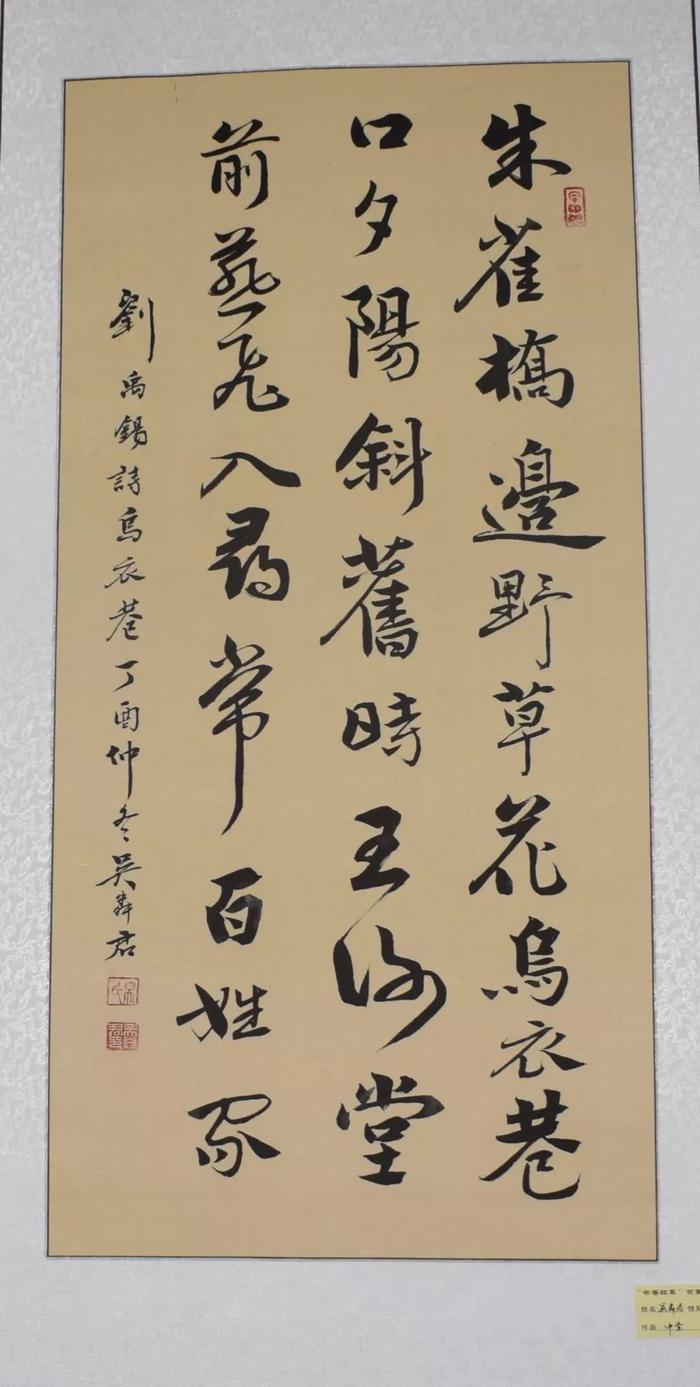 朱雀橋邊野草花烏衣巷
口夕陽斜舊時王謝堂
前燕飛入尋常百姓家
劉禹錫詩烏衣巷丁酉仲冬吳犇君
姓名
作品 中堂